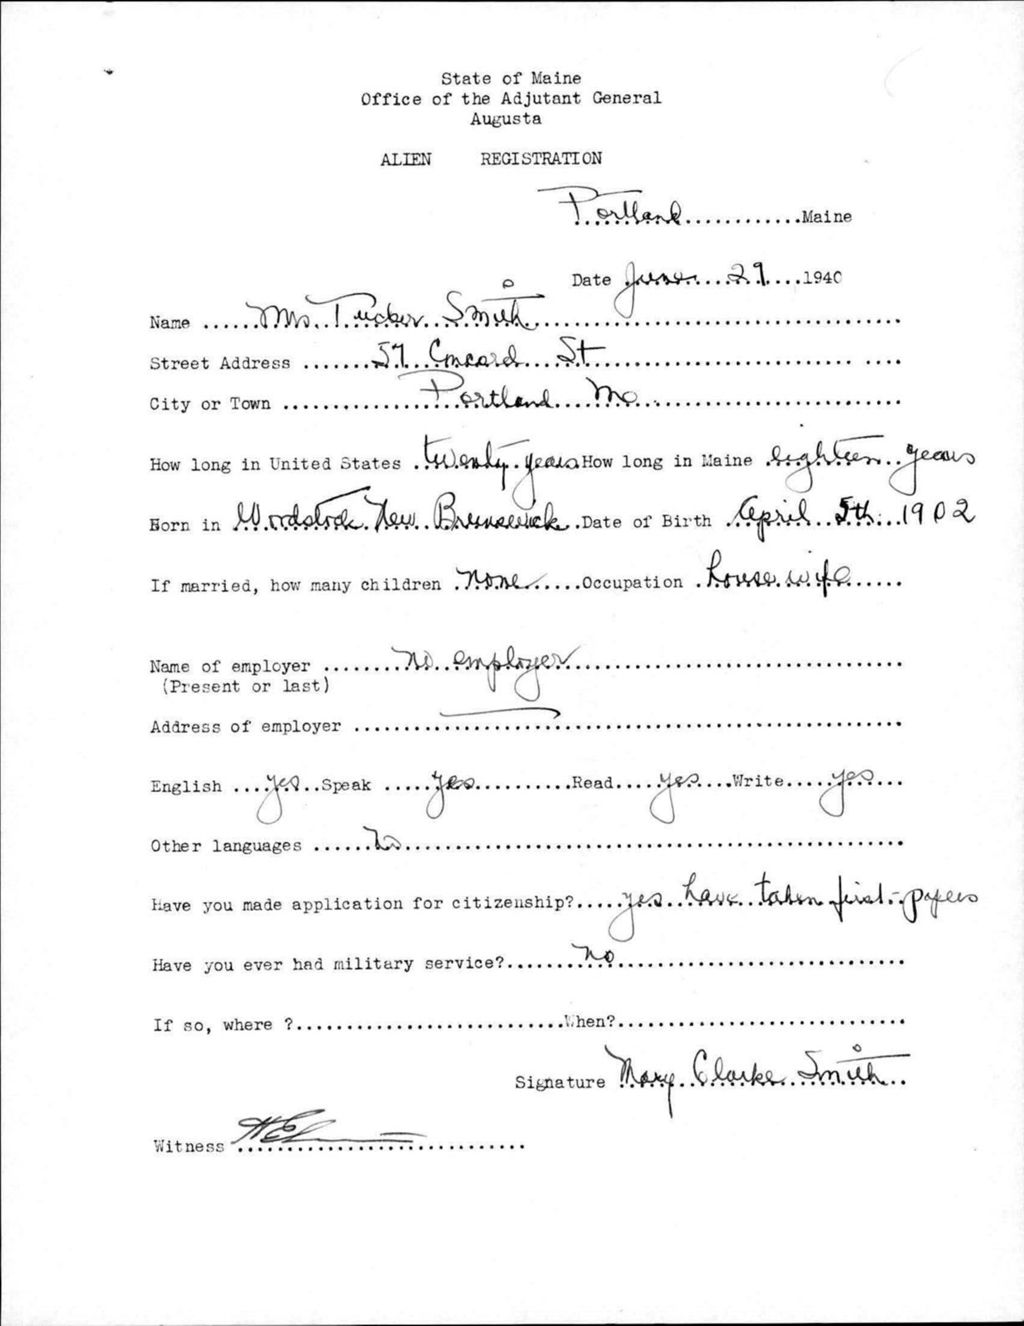 State of Maine
Office of the Adjutant General
Augusta
ALIEN REGISTRATION
Portland............Maine
Date June....29....1940
Name ......Mrs. Tucker Smith......................................
Street Address .......57 Concord St............................... ....
City or Town ...............Portland....Me...........................
How long in United States .twenty years How long in Maine .eighteen..years
Born in .Woodstock, New Brunswick..Date of Birth .April 5th...1902
If married, how many children .None......Occupation .housewife......
Name of employer ........No employer.................................
(Present or last)
Address of employer .......................................................
English ....yes..Speak .....yes...........Read.....yes....Write.....yes...
Other languages ......No..................................................
Have you made application for citizenship?.....yes..have..taken first-papers
Have you ever had military service?........No.............................
If so, where ?...........................When?.............................
Signature Mary Clarke Smith..
Witness .............................